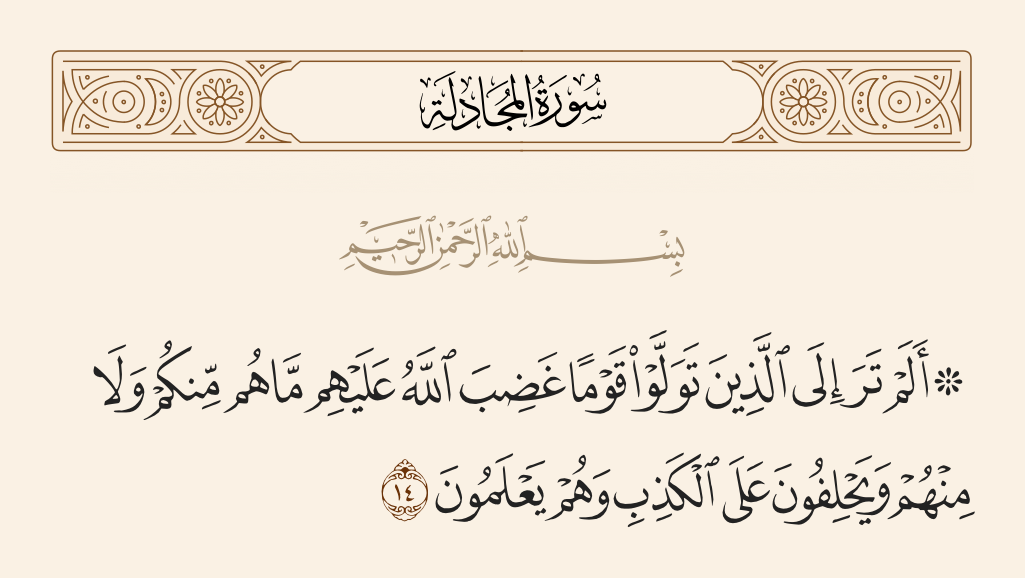 سُورَةُ المُجَادلَةِ
بِسْمِ ٱللَّهِ ٱلرَّحْمَٰنِ ٱلرَّحِيمِ
۞ أَلَمْ تَرَ إِلَى ٱلَّذِينَ تَوَلَّوْا۟ قَوْمًا غَضِبَ ٱللَّهُ عَلَيْهِم مَّا هُم مِّنكُمْ وَلَا
مِنْهُمْ وَيَحْلِفُونَ عَلَى ٱلْكَذِبِ وَهُمْ يَعْلَمُونَ ١٤